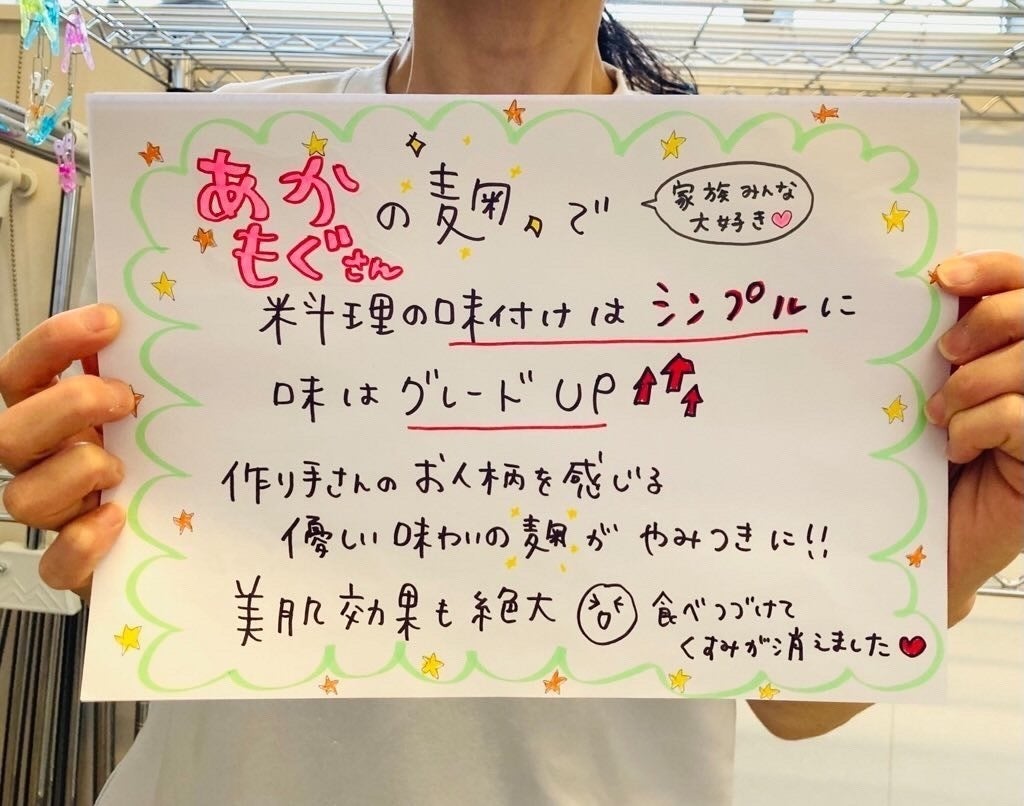 あかもぐさんの麹で
家族みんな
大好き♡
米斗理の味付けはシンプルに
味はグレードUP↑↑↑
作り手さんのお人柄を感じる
優しい味わいの麹がやみつきに!!
美肌効果も絶大
食べつづけて
くすみが消えました♥